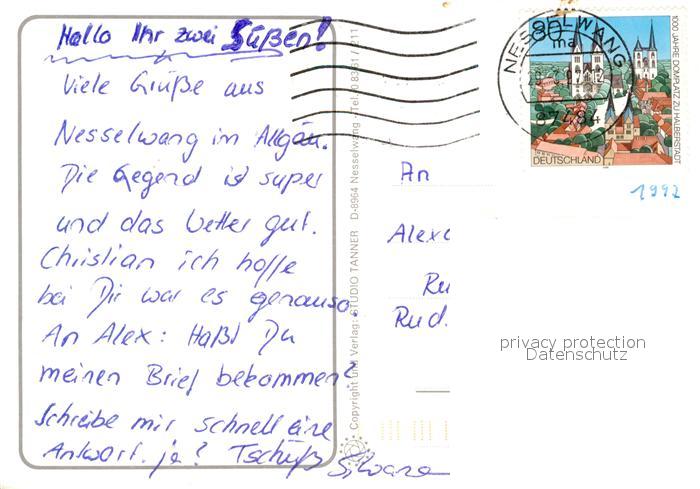 Hallo Ihr zwei Süßen!
Viele Grüße aus
Nesselwang im Allgäu.
Die Gegend ist super
und das Wetter gut.
Christian ich hoffe
bei Dir war es genauso.
An Alex: Haßt Du
meinen Brief bekommen?
Schreibe mir schnell eine
Antwort. ja? Tschüß
Silvana
Copyright und Verlag: STUDIO TANNER D-8964 Nesselwang · Tel. 0 83 61 / 211
NESSELWANG
80
1000 JAHRE DOMPLATZ ZU HALBERSTADT
DEUTSCHLAND
1992
An
Alex
Ru
Rud.
privacy protection
Datenschutz